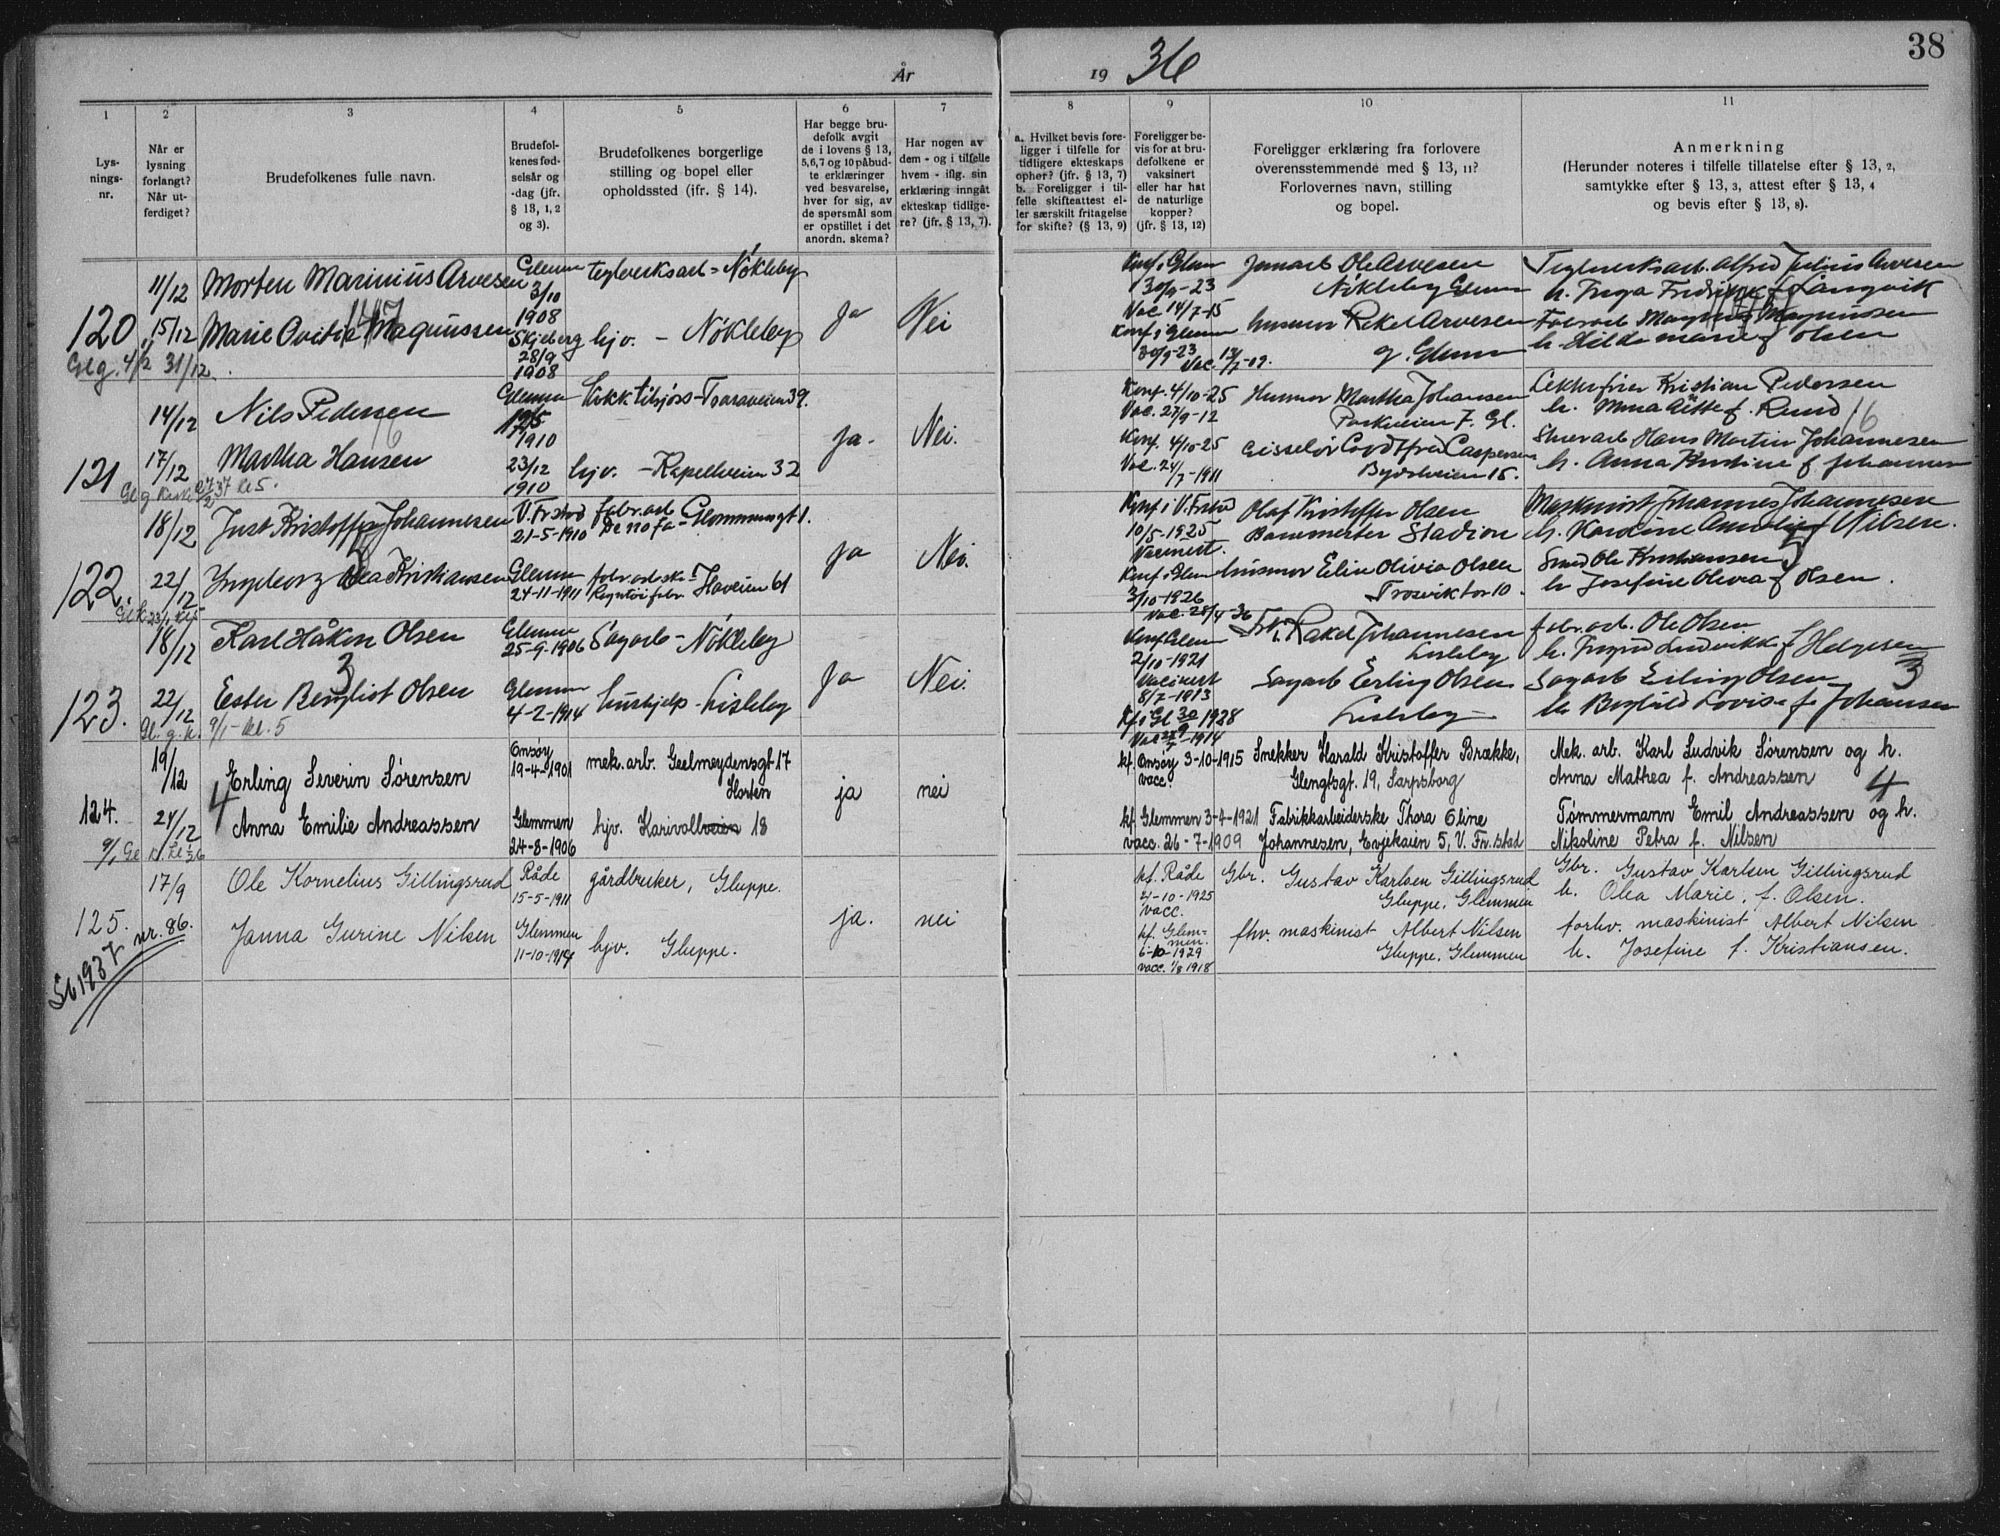 38
År 1936
1
Lys-
nings-
nr.
2
Når er
lysning
forlangt?
Når ut-
ferdiget?
3
Brudefolkenes fulle navn.
4
Brudefol-
kenes fød-
selsår og
-dag (jfr.
§ 13, 1, 2
og 3).
5
Brudefolkenes borgerlige
stilling og bopel eller
opholdssted (ifr. § 14).
6
Har begge bru-
defolk avgit
de i lovens § 13,
5,6,7 og 10 påbud-
te erklæringer
ved besvarelse,
hver for sig, av
de spørsmål som
er opstillet i det
anordn. skema?
7
Har nogen av
dem - og i tilfelle
hvem - iflg. sin
erklæring inngått
ekteskap tidlige-
re? (jfr. § 13, 7).
8
a. Hvilket bevis fore-
ligger i tilfelle for
tidligere ekteskaps
ophør? (jfr. § 13, 7)
b. Foreligger i til-
felle skifteattest el-
ler særskilt fritagelse
for skifte? (§ 13, 9)
9
Foreligger be-
vis for at bru-
defolkene er
vaksinert
eller har hat
de naturlige
kopper?
(jfr. § 13, 12)
10
Foreligger erklæring fra forlovere
overensstemmende med § 13, 11?
Forlovernes navn, stilling
og bopel.
11
Anmerkning
(Herunder noteres i tilfelle tillatelse efter § 13, 2,
samtykke efter § 13, 3, attest efter § 13, 4
og bevis efter § 13, 8).
120
11/12
15/12
31/12
Morten Marinius Arvesen
Marie Magnussen
Glemm
3/10
1908
Skjeberg
28/9
1908
teglverksarb - Nökleby
hjv. - Nökleby
Ja
Nei
Konf. i Glem
30/9-23
Vac. 14/7-15
Konf. i Glemm
30/9-23
Ole Arvesen
Nökleby Glemm
husmor Rakel Arvesen
Glemm
Teglverksarb. Alfred Julius Arvesen
h. Inga Fredrikke f. Langvik
Fabrarb Magnus Magnussen
h. Hilda Marie f. Olsen
121
14/12
17/12
Nils Pedersen
Martha Hansen
16
Glemm
1910
23/12
1910
Traraveien 39.
hjv. - Kapellveien 32
Ja.
Nei.
Konf. 4/10-25
Vac. 27/9-12
Konf. 4/10-25
Vac. 24/7-1911
Husmor Martha Johansen
Parkveien 7. Gl.
Caspersen
15.
Kristian Pedersen
f. Rund
16
Hans Martin Johannesen
h. Anna Kristine f. Johannesen
122.
18/12
22/12
Just Kristoffer Johannesen
Ingeborg Kristiansen
V. Frstad
21-5-1910
Glemm
24-11-1911
fabr. arb
De no fa - Glommengt 1.
Haveien 61
Ja
Nei.
Konf i V. Frstad
10/5-1925
Vaccinert.
Konf. i Glem
3/10-1926
Vac. 28/4-36
Olaf Kristoffer Olsen
Stadion
husmor Elin Olivia Olsen
Trosviktor 10.
Maskinist Johannes Johannesen
h. Karoline Amalie f. Nilsen.
Smed Ole Kristiansen
h. Josefine Olivia f. Olsen.
123.
18/12
22/12
Karl Håkon Olsen
3
Ester Bergliot Olsen
9/1 - kl. 5
Glemm
25-9-1906
Glemm
4-2-1914
Sagarb - Nökleby
hushjelp - Lisleby
Ja
Nei.
Konf Glem
2/10-1921
Vaccinert
8/7-1913
Kf. i Gl 30/9 1928
Rakel Johannesen
Lisleby
Sagarb Erling Olsen
Lisleby
fabr. arb. Ole Olsen
h. Ingrid Ludvikke f. Helgesen
3
Sagarb Erling Olsen
h. Bergliot Lovise f. Johansen
124.
19/12
24/12
Erling Severin Sørensen
4
Anna Emilie Andreassen
Onsøy
19-4-1901
Glemmen
24-8-1906
mek. arb. Geelmeydensgt 17
Horten
hjv. Karivollveien 18
ja
nei
kf. Onsøy 3-10-1915
vacc.
kf. Glemmen 3-4-1921
vacc. 26-7-1909
Snekker Harald Kristoffer Brække,
Glengtsgt. 19, Sarpsborg
Fabrikkarbeiderske Thora Oline
Johannesen, Evjekaien 5, V. Fr.stad
Mek. arb. Karl Ludvik Sørensen og h.
Anna Mathea f. Andreassen
4
Tømmermann Emil Andreassen og h.
Nikoline Petra f. Nilsen
125.
17/9
nr. 86.
Se 1937
Ole Kornelius Gillingsrud
Janna Gurine Nilsen
Råde
15-5-1911
Glemmen
11-10-1914
gårdbruker, Gluppe.
hjv. Gluppe.
ja.
nei
kf. Råde
4-10-1925
vacc.
kf. Glem-
men.
6-10-1929
vacc. 1/8 1918
Gbr. Gustav Karlsen Gillingsrud
Gluppe, Glemmen
fhv. maskinist Albert Nilsen
Gluppe, Glemmen
Gbr. Gustav Karlsen Gillingsrud
h. Olea Marie, f. Olsen.
forhv. maskinist Albert Nilsen
h. Josefine f. Kristiansen.